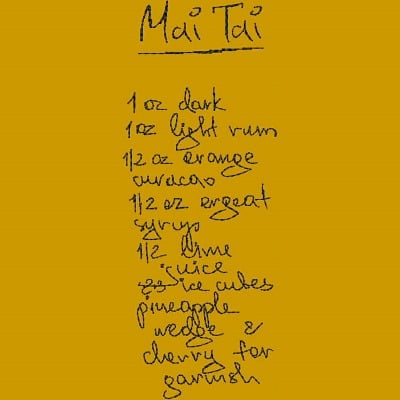 Mai Tai
1 oz dark
1 oz light rum
1/2 oz orange
curacao
1/2 oz orgeat
syrup
1/2 lime
juice
ice cubes
pineapple
wedge &
cherry for
garnish